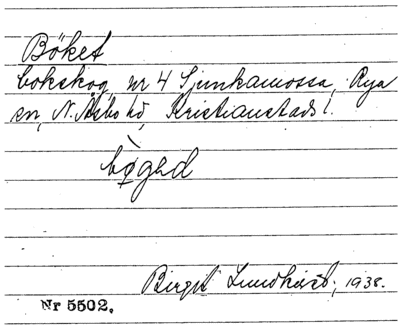 Böket
bokskog, nr 4 Sjunkamossa, Rya
sn, N. Åsbo hd, Kristianstads l.
bø̀gəd
Birgit Lundkvist, 1938.
Nr 5502.